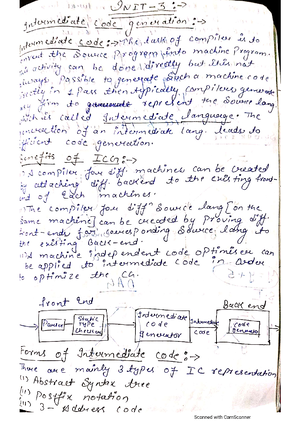 UNIT-3:→
Intermediate Code generation:→
Intermediate Code:→ The task of compiler is to
convert the Source Program into machine Program.
This activity can be done directly but it is not
always Possible to generate Such a machine code
directly in 1 Pass then typically compilers generate
form to represent the Source lang.
which is called Intermediate language. The
generation of an intermediate lang. leads to
efficient code generation.
Benefits of ICG:→
A compiler for diff machines can be created
by attaching diff backend to the existing front-
end of Each machines.
The compiler for diff Source lang (on the
same machine) can be created by proving diff
front-ends for corresponding Source lang to
the existing Back-end.
A machine independent code optimiser can
be applied to intermediate code in order
to optimize the CG.
front End
Back end
Parser
Static type checker
Intermediate code Generator
Intermediate code
code Generator
Forms of Intermediate code:→
There are mainly 3 types of IC representation
(i) Abstract Syntax tree
(ii) Postfix notation
3-Address code
Scanned with CamScanner